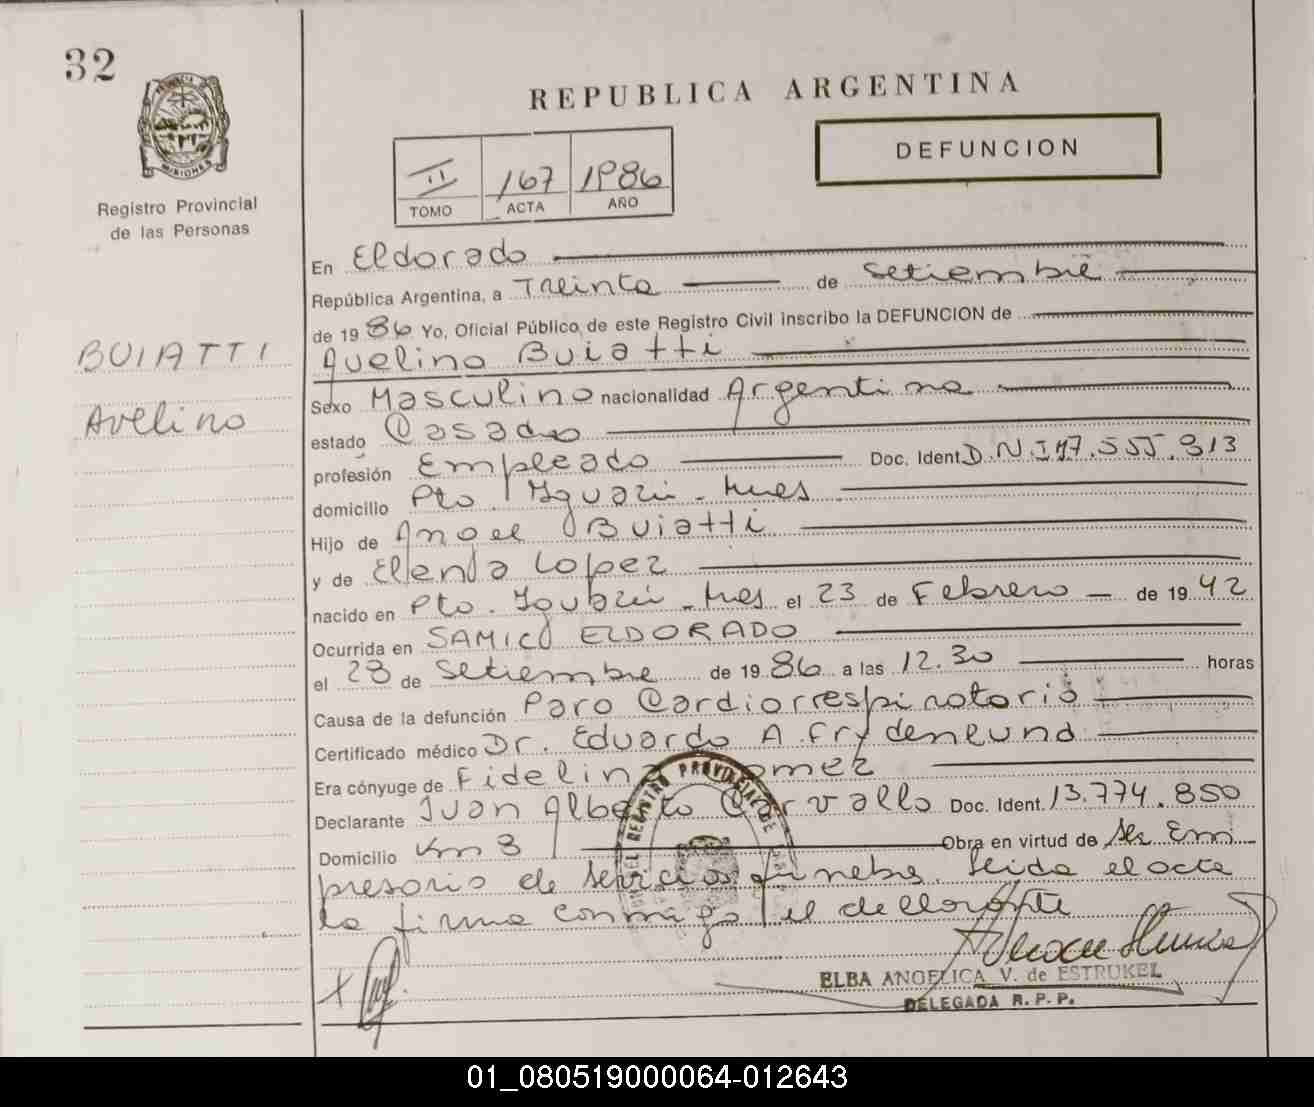 32
PROVINCIA DE MISIONES
Registro Provincial
de las Personas
BUIATTI
Avelino
REPUBLICA ARGENTINA
II 167 1986
TOMO ACTA AÑO
DEFUNCION
En Eldorado
República Argentina, a Treinta de Setiembre
de 1986 Yo, Oficial Público de este Registro Civil inscribo la DEFUNCION de
Avelino Buiatti
Sexo Masculino nacionalidad Argentina
estado Casado
profesión Empleado Doc. Ident. D.N.I 7.555.913
domicilio Pto. Iguazú - Mnes
Hijo de Angel Buiatti
y de Elena Lopez
nacido en Pto. Iguazú - Mnes el 23 de Febrero de 1942
Ocurrida en SAMIC ELDORADO
el 28 de Setiembre de 1986 a las 12.30 horas
Causa de la defunción Paro Cardiorrespiratorio
Certificado médico Dr. Eduardo A. Frydenlund
Era cónyuge de Fidelina Gomez
Declarante Juan Alberto Carvallo Doc. Ident. 13.774.850
Domicilio Km 8 Obra en virtud de ser Em
presario de servicios funebre. Leida el acta
la firma conmigo el declarante
REGISTRO PROVINCIAL DE
ELBA ANGELICA V. de ESTRUKEL
DELEGADA R. P. P.
01_080519000064-012643